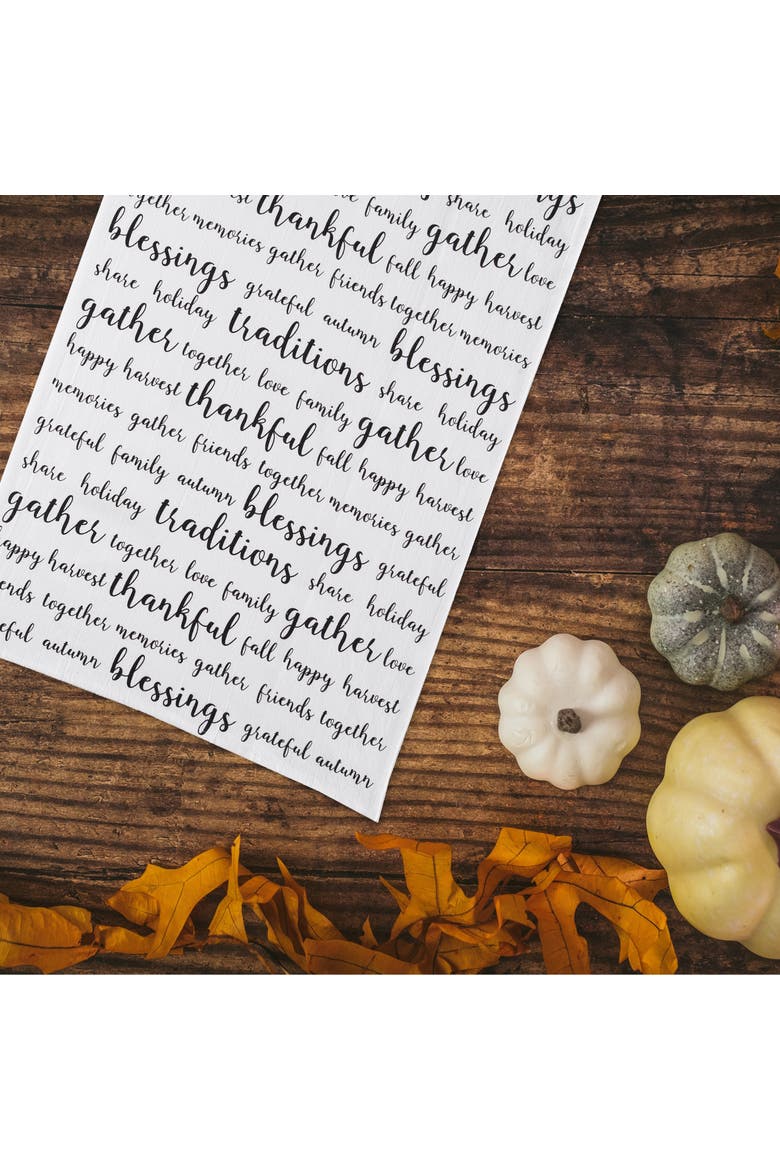 ings
share holiday
ve family gather love
st thankful fall happy harvest
ogether memories gather friends together memories
blessings grateful autumn blessings
share holiday traditions share holiday
gather together love family gather love
happy harvest thankful fall happy harvest
memories gather friends together memories gather
grateful family autumn blessings grateful
share holiday traditions share holiday
gather together love family gather love
happy harvest thankful fall happy harvest
ends together memories gather friends together
eful autumn blessings grateful autumn